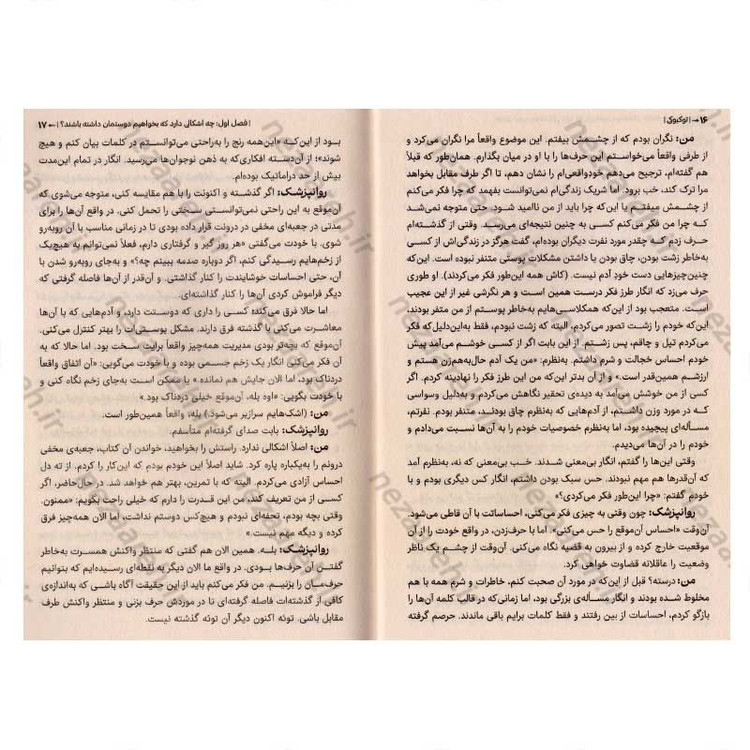 ۱۶ → | توکیوکی |
من: نگران بودم که از چشمش بیفتم. این موضوع واقعاً مرا نگران می‌کرد و
از طرفی واقعاً می‌خواستم این حرف‌ها را با او در میان بگذارم. همان‌طور که قبلاً
هم گفته‌ام، ترجیح می‌دهم خودِ واقعی‌ام را نشان دهم، تا اگر طرف مقابل بخواهد
مرا ترک کند، خب برود. اما شریک زندگی‌ام نمی‌توانست بفهمد که چرا فکر می‌کنم
از چشمش میفتم یا این‌که چرا باید از من ناامید شود. حتی متوجه نمی‌شد
که چرا من فکر می‌کنم کسی به چنین نتیجه‌ای می‌رسد. وقتی از گذشته‌ام
حرف زدم که چقدر مورد نفرت دیگران بوده‌ام، گفت هرگز در زندگی‌اش از کسی
به‌خاطر زشت بودن، چاق بودن یا داشتن مشکلات پوستی متنفر نبوده است. این‌که
چنین چیزهایی دست خودِ آدم نیست. (کاش همه این‌طور فکر می‌کردند). او طوری
حرف می‌زد که انگار طرز فکر درست همین است و هر نگرشی غیر از این عجیب
است. متعجب بود از این‌که همکلاسی‌هایم به‌خاطر پوستم از من متنفر بودند،
این‌که خودم را زشت تصور می‌کردم، البته که زشت نبودم، فقط به‌این‌دلیل که فکر
می‌کردم تپل و چاقم، پس زشتم. از این بابت اگر از کسی خوشم می‌آمد پیش
خودم احساس خجالت و شرم داشتم. به‌نظرم: «من یک آدم حال‌به‌هم‌زن هستم و
ارزشم همین‌قدر است.» و از آن بدتر این‌که من این طرز فکر را نهادینه کردم. اگر
کسی از من خوشش می‌آمد به دیده‌ی تحقیر نگاهش می‌کردم و به‌دلیل وسواسی
که در مورد وزن داشتم، از آدم‌هایی که به‌نظرم چاق بودند، متنفر بودم. نفرتم،
مسأله‌ای پیچیده بود، اما به‌نظرم خصوصیات خودم را به آن‌ها نسبت می‌دادم و
خودم را در آن‌ها می‌دیدم.
وقتی این‌ها را گفتم، انگار بی‌معنی شدند. خب بی‌معنی که نه، به‌نظرم آمد
که آن‌قدرها هم مهم نبودند. حس سبک بودن داشتم، انگار کس دیگری بودم و با
خودم گفتم: «چرا این‌طور فکر می‌کردی؟»
روانپزشک: چون وقتی به چیزی فکر می‌کنی، احساساتت با آن قاطی می‌شود.
آن‌وقت «احساس آن‌موقع را حس می‌کنی.» اما با حرف‌زدن، در واقع خودت را از آن
موقعیت خارج کرده و از بیرون به قضیه نگاه می‌کنی. آن‌وقت از چشم یک ناظر
وضعیت را عاقلانه قضاوت خواهی کرد.
من: درسته؟ قبل از این‌که در مورد آن صحبت کنم، خاطرات و شرم همه با هم
مخلوط شده بودند و انگار مسأله‌ی بزرگی بود، اما زمانی‌که در قالب کلمه آن‌ها را
بازگو کردم، احساسات از بین رفتند و فقط کلمات برایم باقی ماندند. حرصم گرفته
| فصل اول: چه اشکالی دارد که بخواهیم دوستمان داشته باشند؟ | ← ۱۷
بود از این‌که «این‌همه رنج را به‌راحتی می‌توانستم در کلمات بیان کنم و هیچ
شوند»؛ از آن‌دسته افکاری‌که به ذهن نوجوان‌ها می‌رسید. انگار در تمام این‌مدت
بیش از حد دراماتیک بوده‌ام.
روانپزشک: اگر گذشته و اکنونت را با هم مقایسه کنی، متوجه می‌شوی که
آن‌موقع به این راحتی نمی‌توانستی سختی را تحمل کنی. در واقع آن‌ها را برای
مدتی در جعبه‌ای مخفی در درونت قرار داده بودی تا در زمانی مناسب با آن روبه‌رو
شوی. با خودت می‌گفتی «هر روز گیر و گرفتاری دارم، فعلاً نمی‌توانم به هیچ‌یک
از زخم‌هایم رسیدگی کنم، اگر دوباره صدمه ببینم چه؟» و به‌جای روبه‌رو شدن با
آن، حتی احساسات خوشایندت را کنار گذاشتی. و آن‌قدر از آن‌ها فاصله گرفتی که
دیگر فراموش کردی آن‌ها را کنار گذشته‌ای.
اما حالا فرق می‌کند؛ کسی را داری که دوستت دارد، و آدم‌هایی که با آن‌ها
معاشرت می‌کنی با گذشته فرق دارند. مشکل پوستی‌ات را بهتر کنترل می‌کنی.
آن‌موقع که بچه‌تر بودی مدیریت همه‌چیز واقعاً برایت سخت بود. اما حالا که به
آن فکر می‌کنی انگار یک زخم جسمی بوده و با خودت می‌گویی: «آن اتفاق واقعاً
دردناک بود، اما الان جایش هم نمانده.» یا ممکن است به‌جای زخم نگاه کنی و
با خودت بگویی: «اوه بله، آن‌موقع خیلی دردناک بود.»
من: (اشک‌هایم سرازیر می‌شود) بله، واقعاً همین‌طور است.
روانپزشک: بابت صدای گرفته‌ام متأسفم.
من: اصلاً اشکالی ندارد. راستش را بخواهید، خواندن آن کتاب، جعبه‌ی مخفی
درونم را به‌یکباره پاره کرد. شاید اصلاً این خودم بودم که این‌کار را کردم. از ته دل
احساس آزادی می‌کردم. البته که با تمرین، بهتر هم خواهد شد. در حال‌حاضر، اگر
کسی از من تعریف کند، من این قدرت را دارم که خیلی راحت بگویم: «ممنون.
وقتی بچه بودم، تحفه‌ای نبودم و هیچ‌کس دوستم نداشت، اما الان همه‌چیز فرق
کرده و دیگه مهم نیست.»
روانپزشک: بله. همین الان هم گفتی که منتظر واکنش همسرت به‌خاطر
گفتن آن حرف‌ها بودی. در واقع ما الان دیگر به نقطه‌ای رسیده‌ایم که بتوانیم
حرف‌مان را بزنیم. من فکر می‌کنم باید از این حقیقت آگاه باشی که به‌اندازه‌ی
کافی از گذشته‌ات فاصله گرفته‌ای تا در موردش حرف بزنی و منتظر واکنش طرف
مقابل باشی. توئه اکنون دیگر آن توئه گذشته نیست.
nezaareh.ir